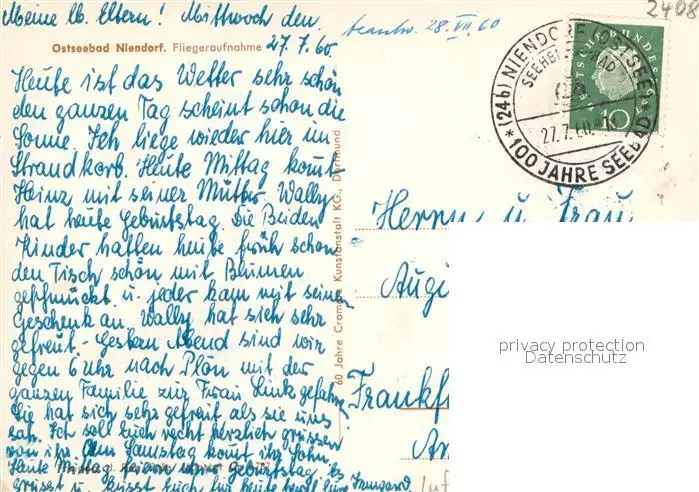 Meine lb. Eltern! Mittwoch den
27.7.60.
beantw. 28.VII.60
2408
Ostseebad Niendorf. Fliegeraufnahme
Heute ist das Wetter sehr schön
den ganzen Tag scheint schon die
Sonne. Ich liege wieder hier im
Strandkorb. Heute Mittag kommt
Heinz mit seiner Mutter. Wally
hat heute Geburtstag. Die Beiden
Kinder hatten heute früh schon
den Tisch schön mit Blumen
geschmückt u. jeder kam mit seinem
Geschenk an. Wally hat sich sehr
gefreut. Gestern Abend sind wir
gegen 6 Uhr nach Plön mit der
ganzen Familie zur Frau Link gefahren
Sie hat sich sehr gefreut als sie uns
sah. Ich soll Euch recht herzlich grüssen
von ihr. Am Samstag kommt ihr Sohn.
Heute Mittag feiern wir Geburtstag. Es
grüsst u. küsst Euch für heute Irmgard.
60 Jahre Cramers Kunstanstalt KG., Dortmund
(24b) NIENDORF (OSTSEE)
27.7.60
* 100 JAHRE SEEBAD *
DEUTSCHE BUNDESPOST
10
Herrn u. Frau
Frankf
privacy protection
Datenschutz